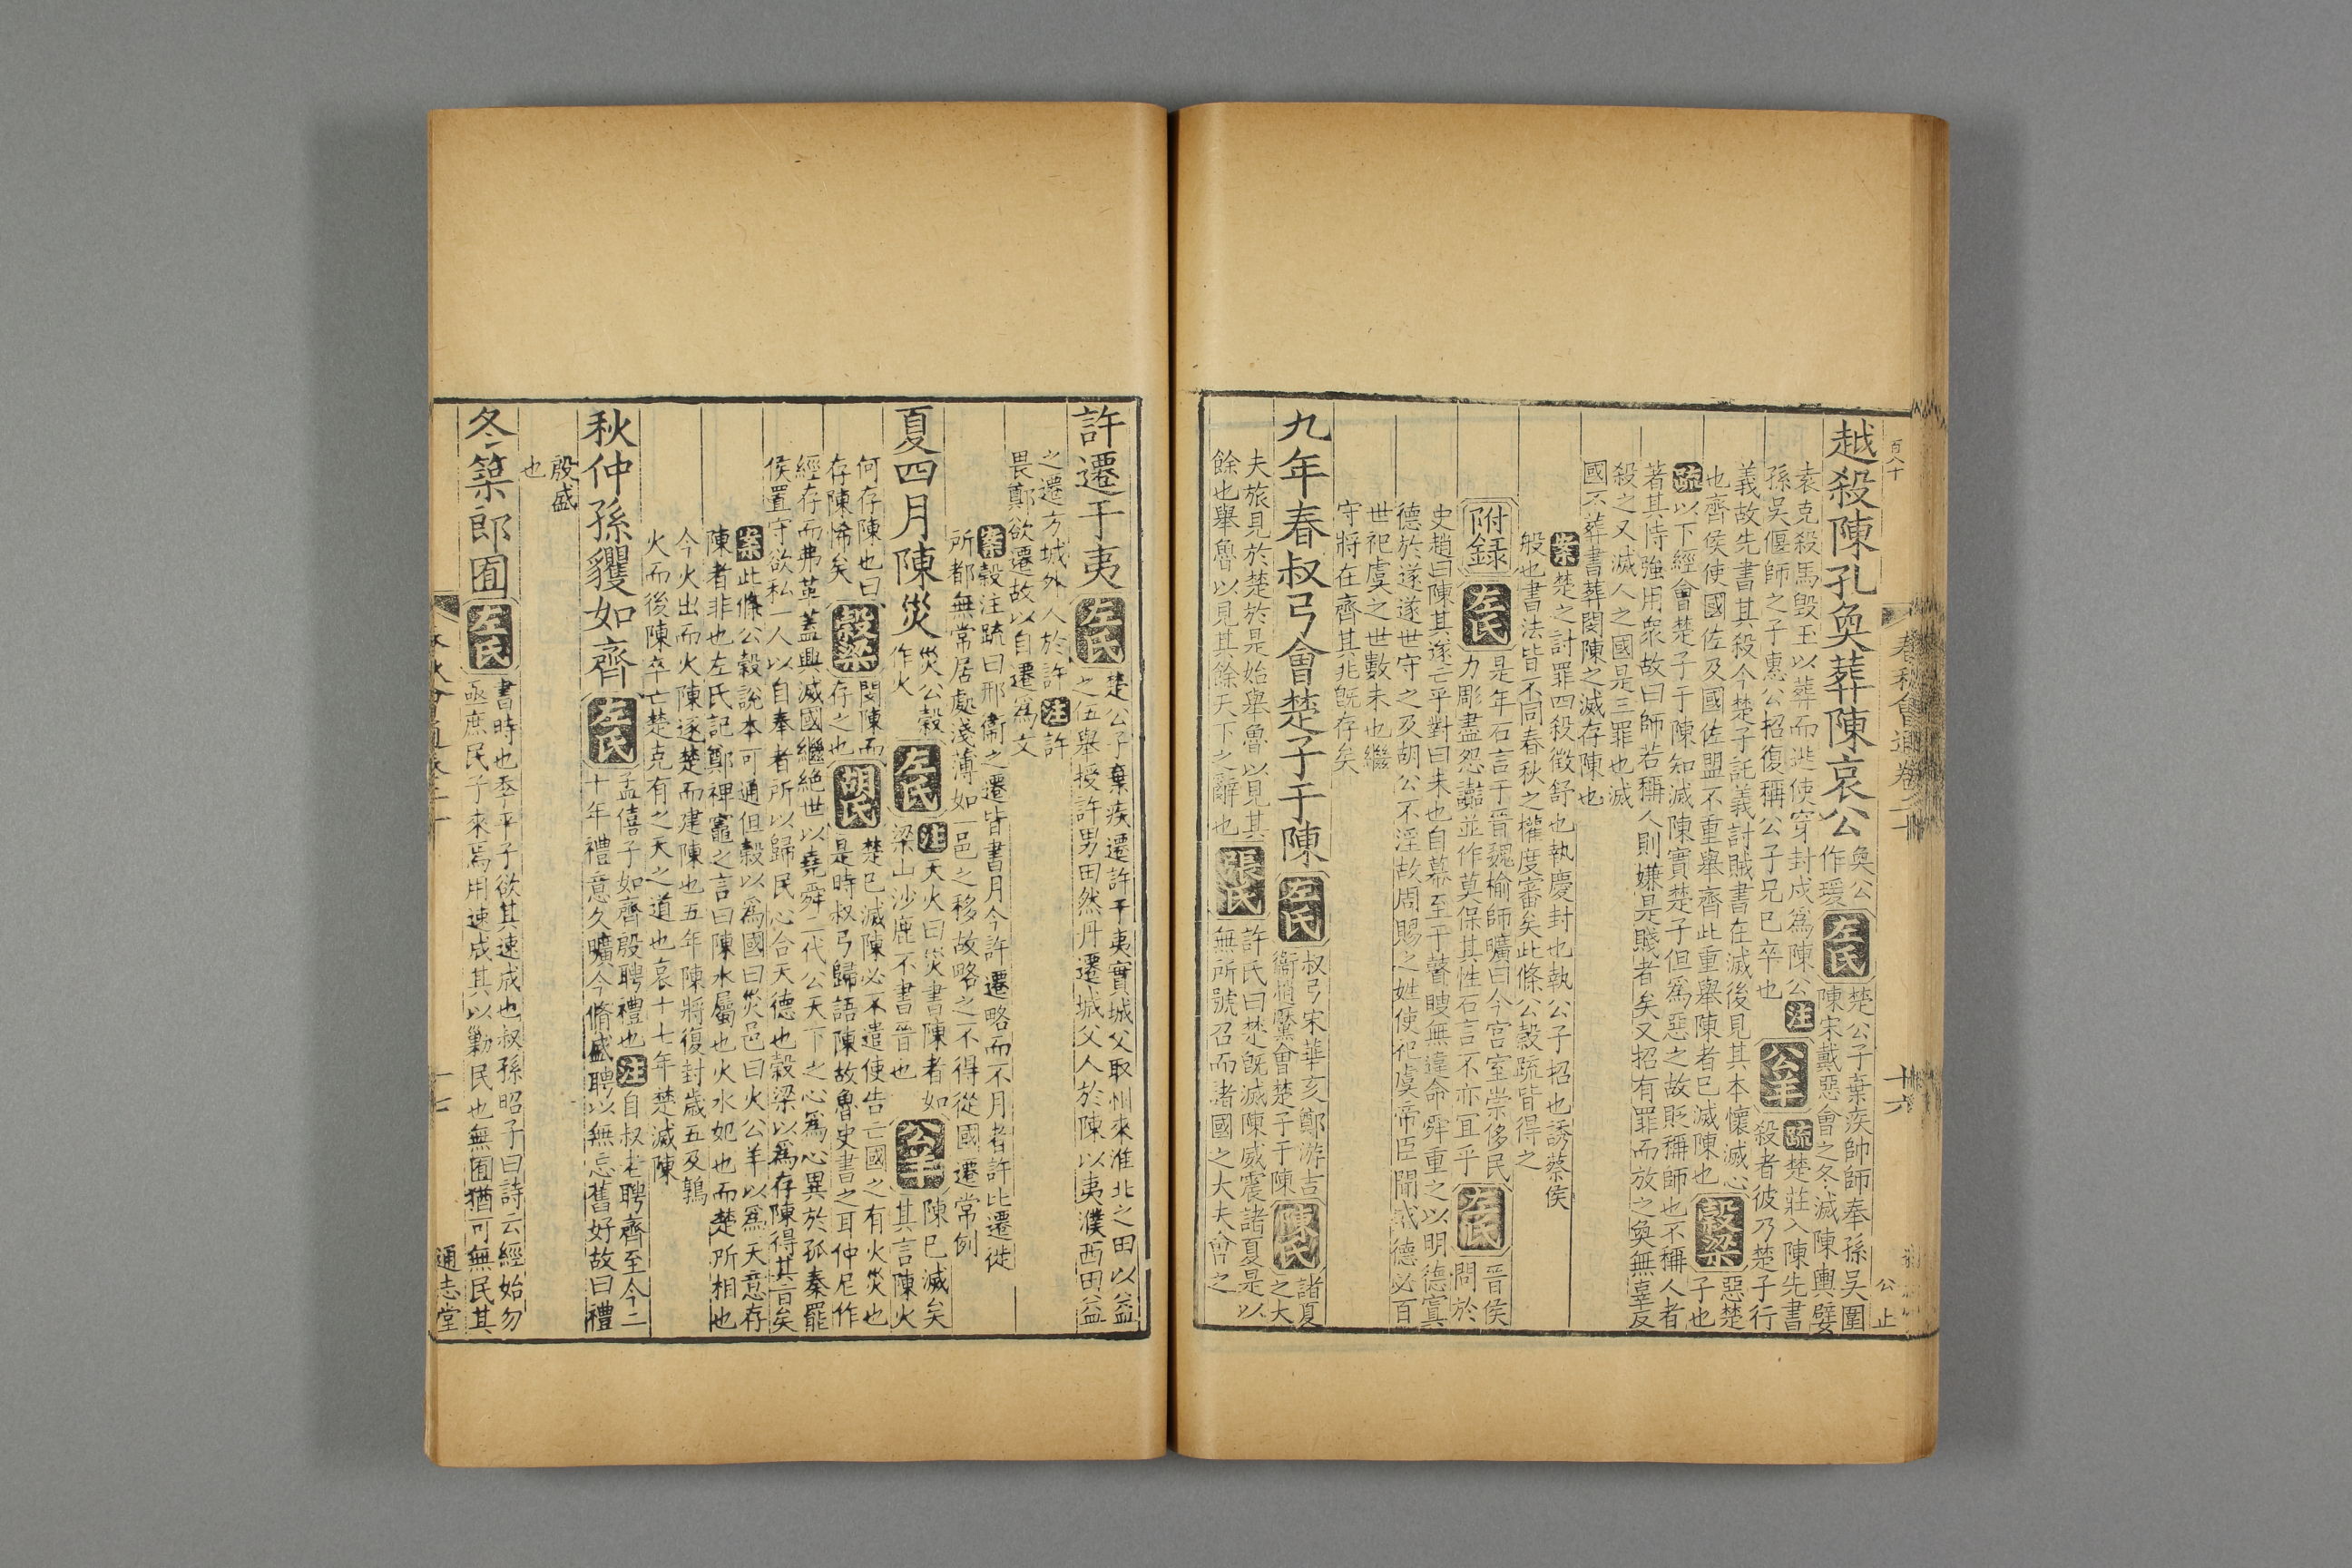 百八十
春秋會通卷二十
十六
公止
越殺陳孔奐葬陳哀公 奐公
作瑗
左氏 楚公子棄疾帥師奉孫吳圍
陳宋戴惡會之冬滅陳輿嬖
袁克殺馬毀玉以葬而逃使穿封戌爲陳公 注
孫吳偃師之子惠公招復稱公子兄已卒也
公羊 疏 楚莊入陳先書
殺者彼乃楚子行
義故先書其殺今楚子託義討賊書在滅後見其本懷滅心
也齊侯使國佐及國佐盟不重舉齊此重舉陳者已滅陳也
穀梁 惡楚
子也
疏 以下經會楚子于陳知滅陳實楚子但爲惡之故貶稱師也不稱人者
著其恃強用衆故曰師若稱人則嫌是賤者矣又招有罪而放之奐無辜反
殺之又滅人之國是三罪也滅
國不葬書葬閔陳之滅存陳也
案 楚之討罪四殺徵舒也執慶封也執公子招也誘蔡侯
般也書法皆不同春秋之權度審矣此條公穀疏皆得之
附録 左氏 是年石言于晉魏榆師曠曰今宮室崇侈民
力彫盡怨讟並作莫保其性石言不亦宜乎
左氏 晉侯
問於
史趙曰陳其遂亡乎對曰未也自幕至于瞽瞍無違命舜重之以明德寘
德於遂遂世守之及胡公不淫故周賜之姓使祀虞帝臣聞盛德必百
世祀虞之世數未也繼
守將在齊其兆既存矣
九年春叔弓會楚子于陳 左氏 叔弓宋華亥鄭游吉
衞趙黶會楚子于陳
陳氏 諸夏
之大
夫旅見於楚於是始舉魯以見其
餘也舉魯以見其餘天下之辭也
張氏 許氏曰楚既滅陳威震諸夏是以
無所號召而諸國之大夫會之
許遷于夷 左氏 楚公子棄疾遷許于夷實城父取州來淮北之田以益
之伍舉授許男田然丹遷城父人於陳以夷濮西田益
之遷方城外人於許 注 許
畏鄭欲遷故以自遷爲文
案 穀注疏曰邢衞之遷皆書月今許遷略而不月者許比遷徙
所都無常居處淺薄如一邑之移故略之不得從國遷常例
夏四月陳災 災公穀
作火
左氏 注 天火曰災書陳者如
梁山沙鹿不書晉也
公羊 陳已滅矣
其言陳火
何存陳也曰
存陳悕矣
穀梁 閔陳而
存之也
胡氏 楚已滅陳必不遣使告亡國之有火災也
是時叔弓歸語陳故魯史書之耳仲尼作
經存而弗革蓋興滅國繼絶世以堯舜二代公天下之心爲心異於孤秦罷
侯置守欲私一人以自奉者所以歸民心合天德也穀梁以爲存陳得其旨矣
案 此條公穀說本可通但穀以爲國曰災邑曰火公羊以爲天意存
陳者非也左氏記鄭裨竈之言曰陳水屬也火水妃也而楚所相也
今火出而火陳逐楚而建陳也五年陳將復封歲五及鶉
火而後陳卒亡楚克有之天之道也哀十七年楚滅陳
秋仲孫貜如齊 左氏 孟僖子如齊殷聘禮也 注 自叔老聘齊至今二
十年禮意久曠今脩盛聘以無忘舊好故曰禮
殷盛
也
冬築郎囿 左氏 書時也季平子欲其速成也叔孫昭子曰詩云經始勿
亟庶民子來焉用速成其以勦民也無囿猶可無民其
十七
通志堂